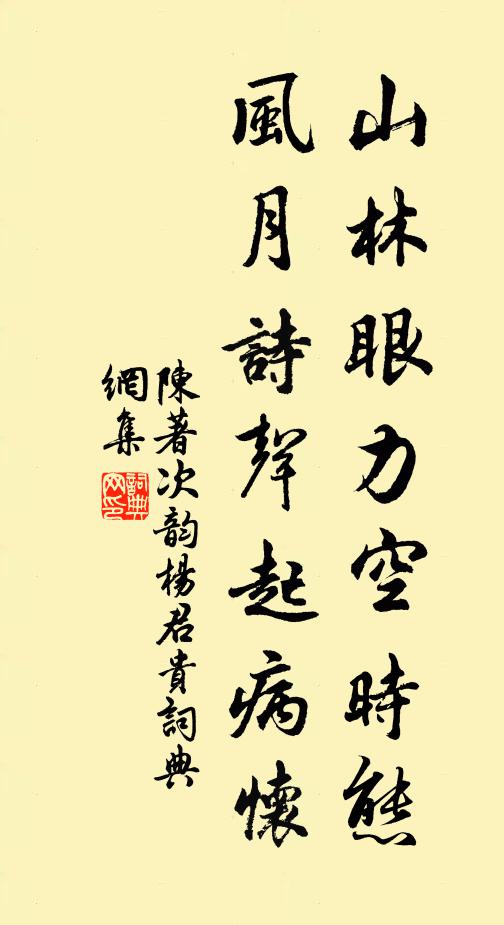 山林眼力空時態
風月詩聲起病懷
陳著次韵楊君貴詞典
網集
詞典
网印